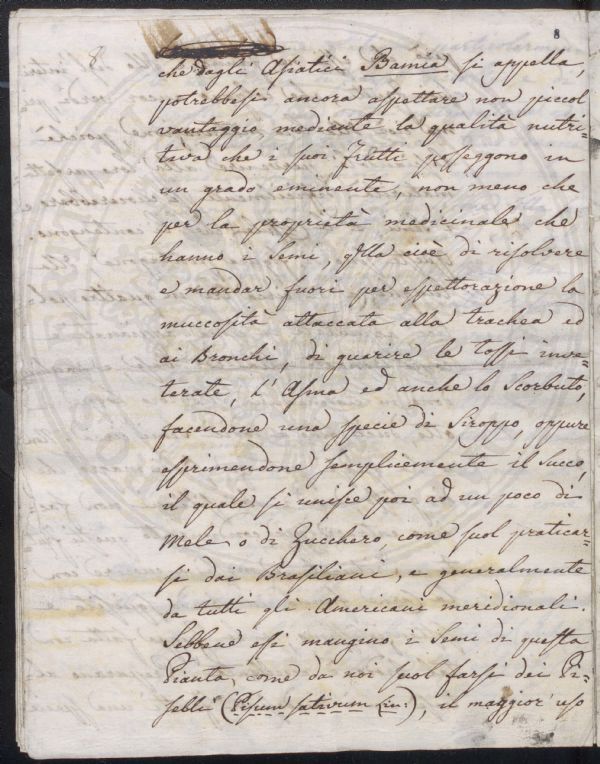 8
8.
che dagli Asiatici Bamia si appella,
potrebbesi ancora aspettare non piccol
vantaggio mediante la qualità nutri=
tiva che i suoi frutti posseggono in
un grado eminente, non meno che
per la proprietà medicinale che
hanno i Semi, quella cioè di risolvere
e mandar fuori per espettorazione la
muccosità attaccata alla trachea ed
ai Bronchi, di guarire le Tossi inve=
terate, l'Asma ed anche lo Scorbuto,
facendone una specie di Siroppo, oppure
esprimendone semplicemente il succo,
il quale si unisce poi ad un poco di
Mele o di Zucchero, come suol praticar=
si dai Brasiliani, e generalmente
da tutti gli Americani meridionali.
Sebbene essi mangino i Semi di questa
Pianta, come da noi suol farsi dei Pi=
selli (Pisum sativum Lin:), il maggior uso